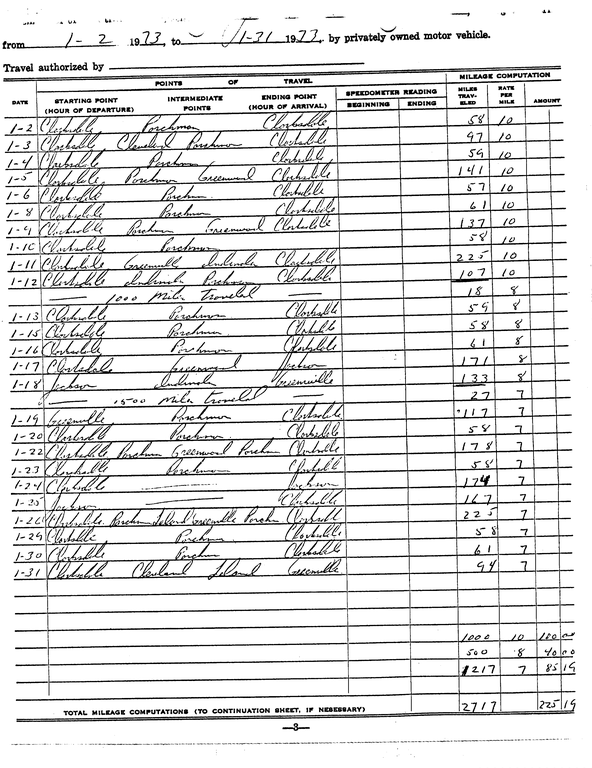 from 1-2 1973, to 1-31 1973, by privately owned motor vehicle.
Travel authorized by
POINTS OF TRAVEL MILEAGE COMPUTATION
DATE STARTING POINT (HOUR OF DEPARTURE) INTERMEDIATE POINTS ENDING POINT (HOUR OF ARRIVAL) SPEEDOMETER READING BEGINNING ENDING MILES TRAVELED RATE PER MILE AMOUNT
1-2 Clarksdale Parchman Clarksdale 58 10
1-3 Clarksdale Cleveland Parchman Clarksdale 97 10
1-4 Clarksdale Parchman Clarksdale 59 10
1-5 Clarksdale Parchman Greenwood Clarksdale 141 10
1-6 Clarksdale Parchman Clarksdale 57 10
1-8 Clarksdale Parchman Clarksdale 61 10
1-9 Clarksdale Parchman Greenwood Clarksdale 137 10
1-10 Clarksdale Parchman 58 10
1-11 Clarksdale Greenville Indianola Clarksdale 225 10
1-12 Clarksdale Indianola Parchman Clarksdale 107 10
1000 Miles Traveled 18 8
1-13 Clarksdale Parchman Clarksdale 59 8
1-15 Clarksdale Parchman Clarksdale 58 8
1-16 Clarksdale Parchman Clarksdale 61 8
1-17 Clarksdale Greenwood Jackson 171 8
1-18 Jackson Indianola Greenville 133 8
1500 Miles traveled 27 7
1-19 Greenville Parchman Clarksdale 117 7
1-20 Clarksdale Parchman Clarksdale 58 7
1-22 Clarksdale Parchman Greenwood Parchman Clarksdale 178 7
1-23 Clarksdale Parchman Clarksdale 58 7
1-24 Clarksdale Jackson 174 7
1-25 Jackson Clarksdale 167 7
1-26 Clarksdale Parchman Leland Greenville Parchman Clarksdale 225 7
1-29 Clarksdale Parchman Clarksdale 58 7
1-30 Clarksdale Parchman Clarksdale 61 7
1-31 Clarksdale Cleveland Leland Greenville 94 7
1000 10 100 00
500 8 40 00
1217 7 85 19
TOTAL MILEAGE COMPUTATIONS (TO CONTINUATION SHEET, IF NESESSARY) 2717 225 19
—3—